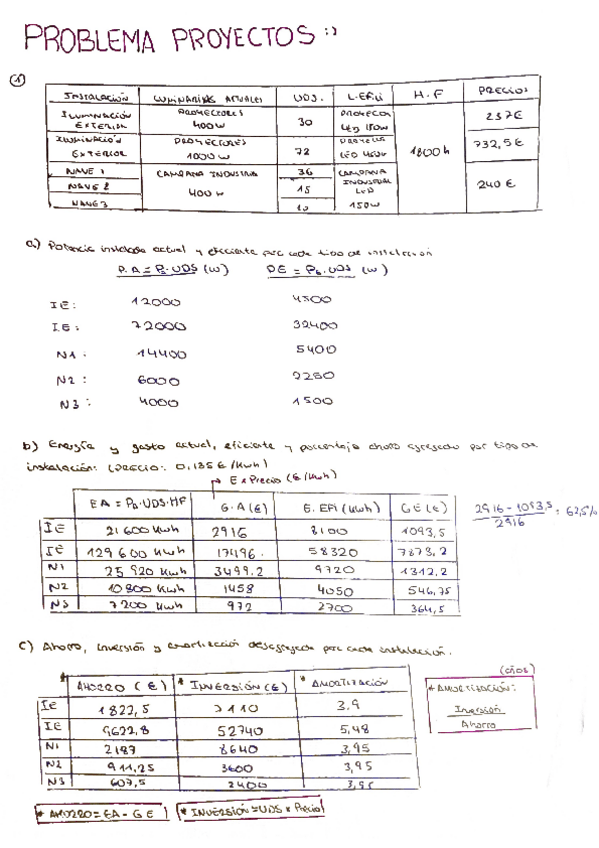 PROBLEMA PROYECTOS :)
①
INSTALACIÓN LUMINARIAS ACTUALES UDS. L.EFILI H.F PRECIOS
ILUMINACIÓN EXTERIOR PROYECTORES 400W 30 PROYECTOR LED 150W 1800h 237€
ILUMINACIÓN EXTERIOR PROYECTORES 1000W 72 PROYECTOR LED 450W 732,5€
NAVE 1 CAMPANA INDUSTRIAL 400W 36 CAMPANA INDUSTRIAL LED 150W 240€
NAVE 2 15
NAVE 3 10
a) Potencia instalada actual y eficiente por cada tipo de instalación
P.A = Po·UDS (W) PE = Po·UDS (W)
IE: 12000 4500
I.E: 72000 32400
N1: 14400 5400
N2: 6000 2250
N3: 4000 1500
b) Energía y gasto actual, eficiente y porcentaje ahorro agregado por tipo de
instalación: (PRECIO: 0,135€/Kwh)
E x Precio (€/Kwh)
EA = Po·UDS·HF G.A (€) E. EFI (Kwh) GE (€)
IE 21600 Kwh 2916 8100 1093,5
IE 129600 Kwh 17496. 58320 7873,2
N1 25920 Kwh 3499.2 9720 1312,2
N2 10800 Kwh 1458 4050 546,75
N3 7200 Kwh 972 2700 364,5
2916 - 1093,5 / 2916 = 62,5%
c) Ahorro, inversión y amortización desagregada por cada instalación.
* AHORRO (€) * INVERSIÓN (€) * AMORTIZACIÓN
IE 1822,5 7110 3.9
IE 9622,8 52740 5,48
N1 2187 8640 3,95
N2 911,25 3600 3,95
N3 607,5 2400 3,95
(años)
* AMORTIZACIÓN:
Inversión
Ahorro
* AHORRO = EA - GE * INVERSIÓN = UDS x Precio